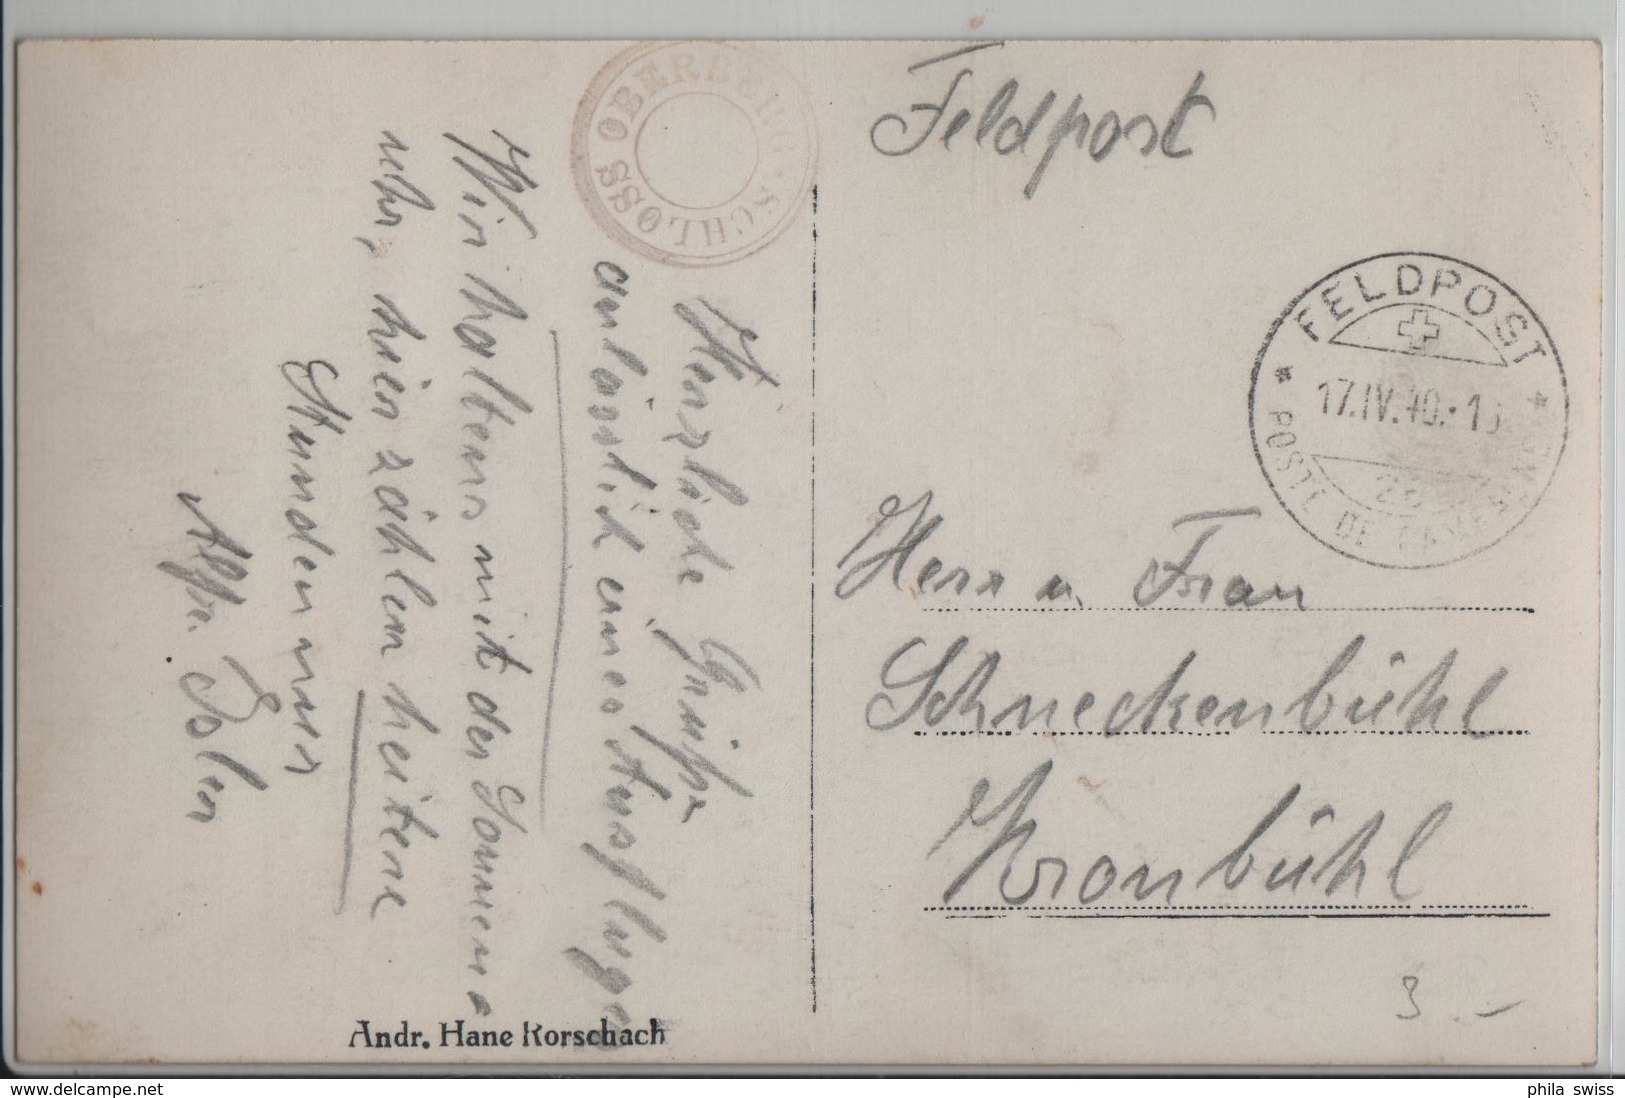 SCHLOSS OBERBERG
Herzliche Grüsse
anlässlich eines Ausfluges
Wir haltens mit der Sonnen =
uhr, hier zählen heitere
Stunden nur
Andr. Hane Rorschach
Feldpost
FELDPOST
17.IV.40.
POSTE DE CAMPAGNE
Herr u. Frau
Schneckenbühl
Kronbühl
3.-
www.delcampe.net
phila swiss